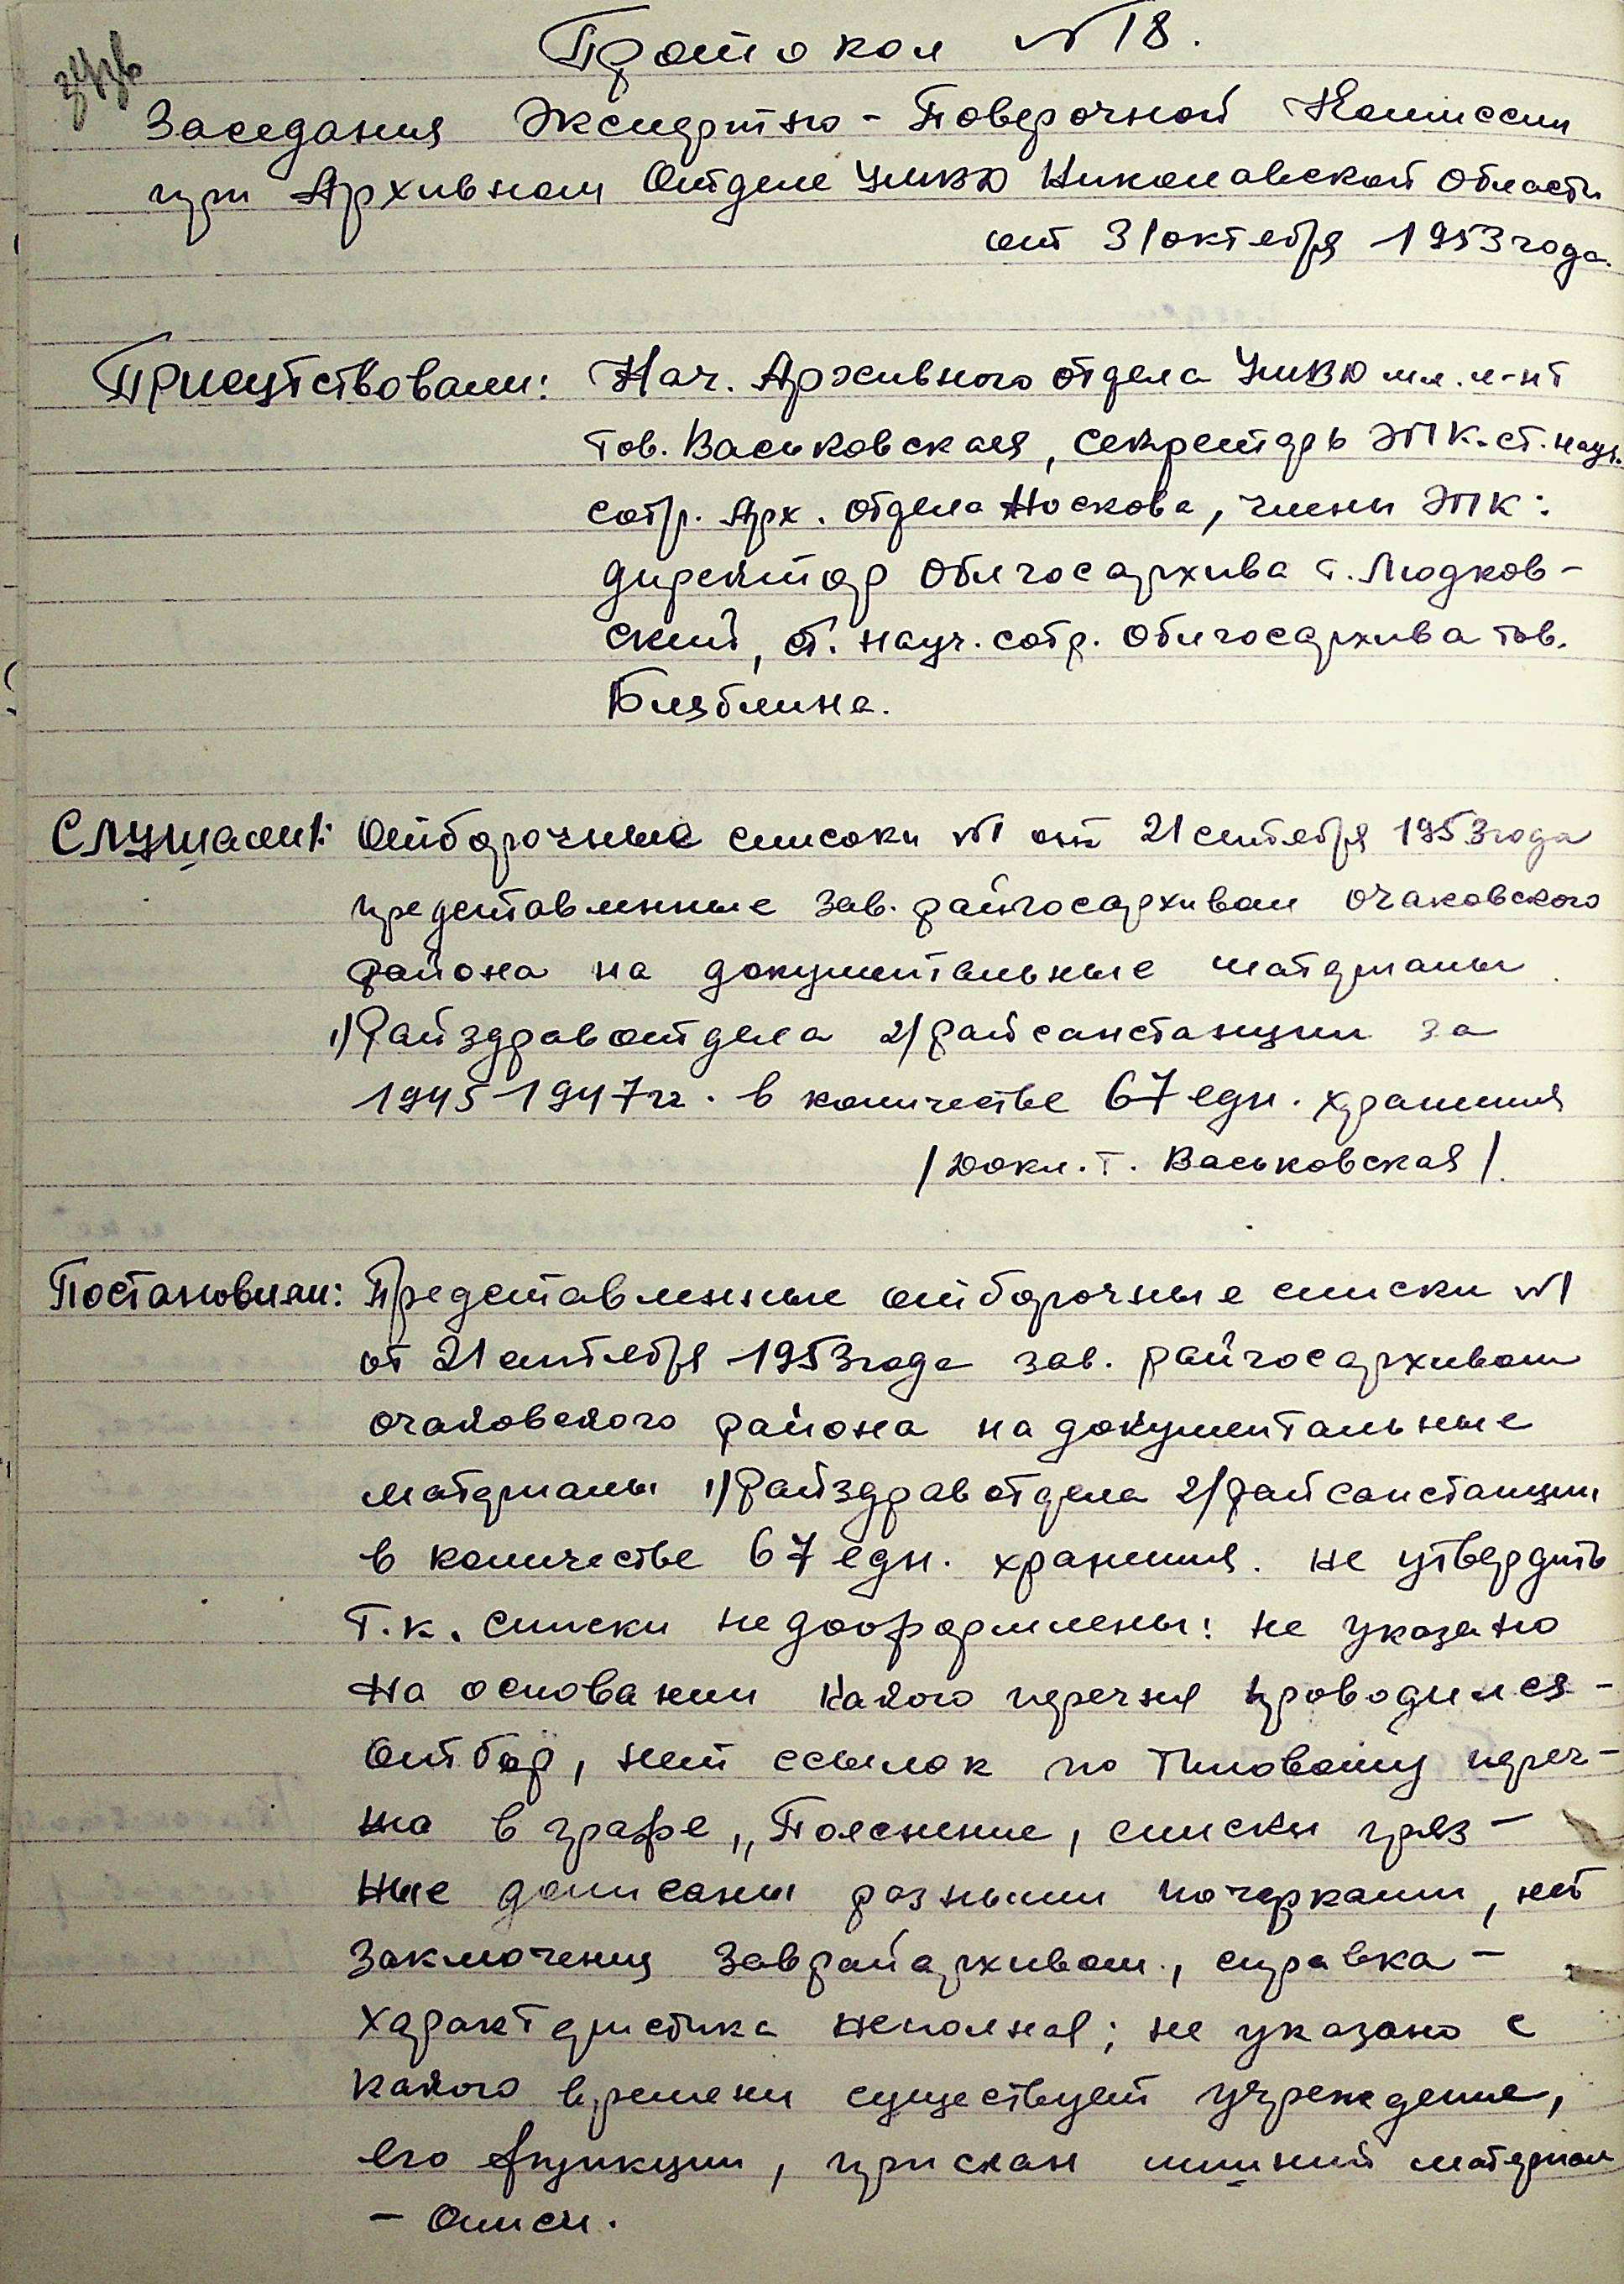 Протокол № 18.
Заседания Экспертно - Поверочной Комиссии
при Архивном Отделе УМВД Николаевской Области
от 31 октября 1953 года.
Присутствовали: Нач. Архивного отдела УМВД мл. л-нт
тов. Васьковская, Секретарь ЭПК. ст. науч.
сотр. Арх. отдела Носкова, члены ЭПК:
директор Облгосархива т. Людков-
ский, ст. науч. сотр. Облгосархива тов.
Слушали: Отборочные списоки №1 от 21 сентября 1953 года
представленные зав. райгосархивом Очаковского
района на документальные материалы
1) Райздравотдела 2) райсанстанции за
1945-1947 гг. в количестве 67 един. хранения
/Докл. т. Васьковская/.
Постановили: Представленные отборочные списки №1
от 21 сентября 1953 года зав. райгосархивом
Очаковского района на документальные
материалы 1) Райздравотдела 2) райсанстанции
в количестве 67 един. хранения. не утвердить
т.к. списки недооформлены: не указано
на основании какого перечня проводился -
Отбор, нет ссылок по Типовому переч-
ню в графе „Пояснение, списки гряз-
ные дописаны разными почерками, нет
заключения Заврайархивом, справка -
характеристика неполная; не указано с
какого времени существует учреждение,
его функции, прислан лишний материал
- Описи.